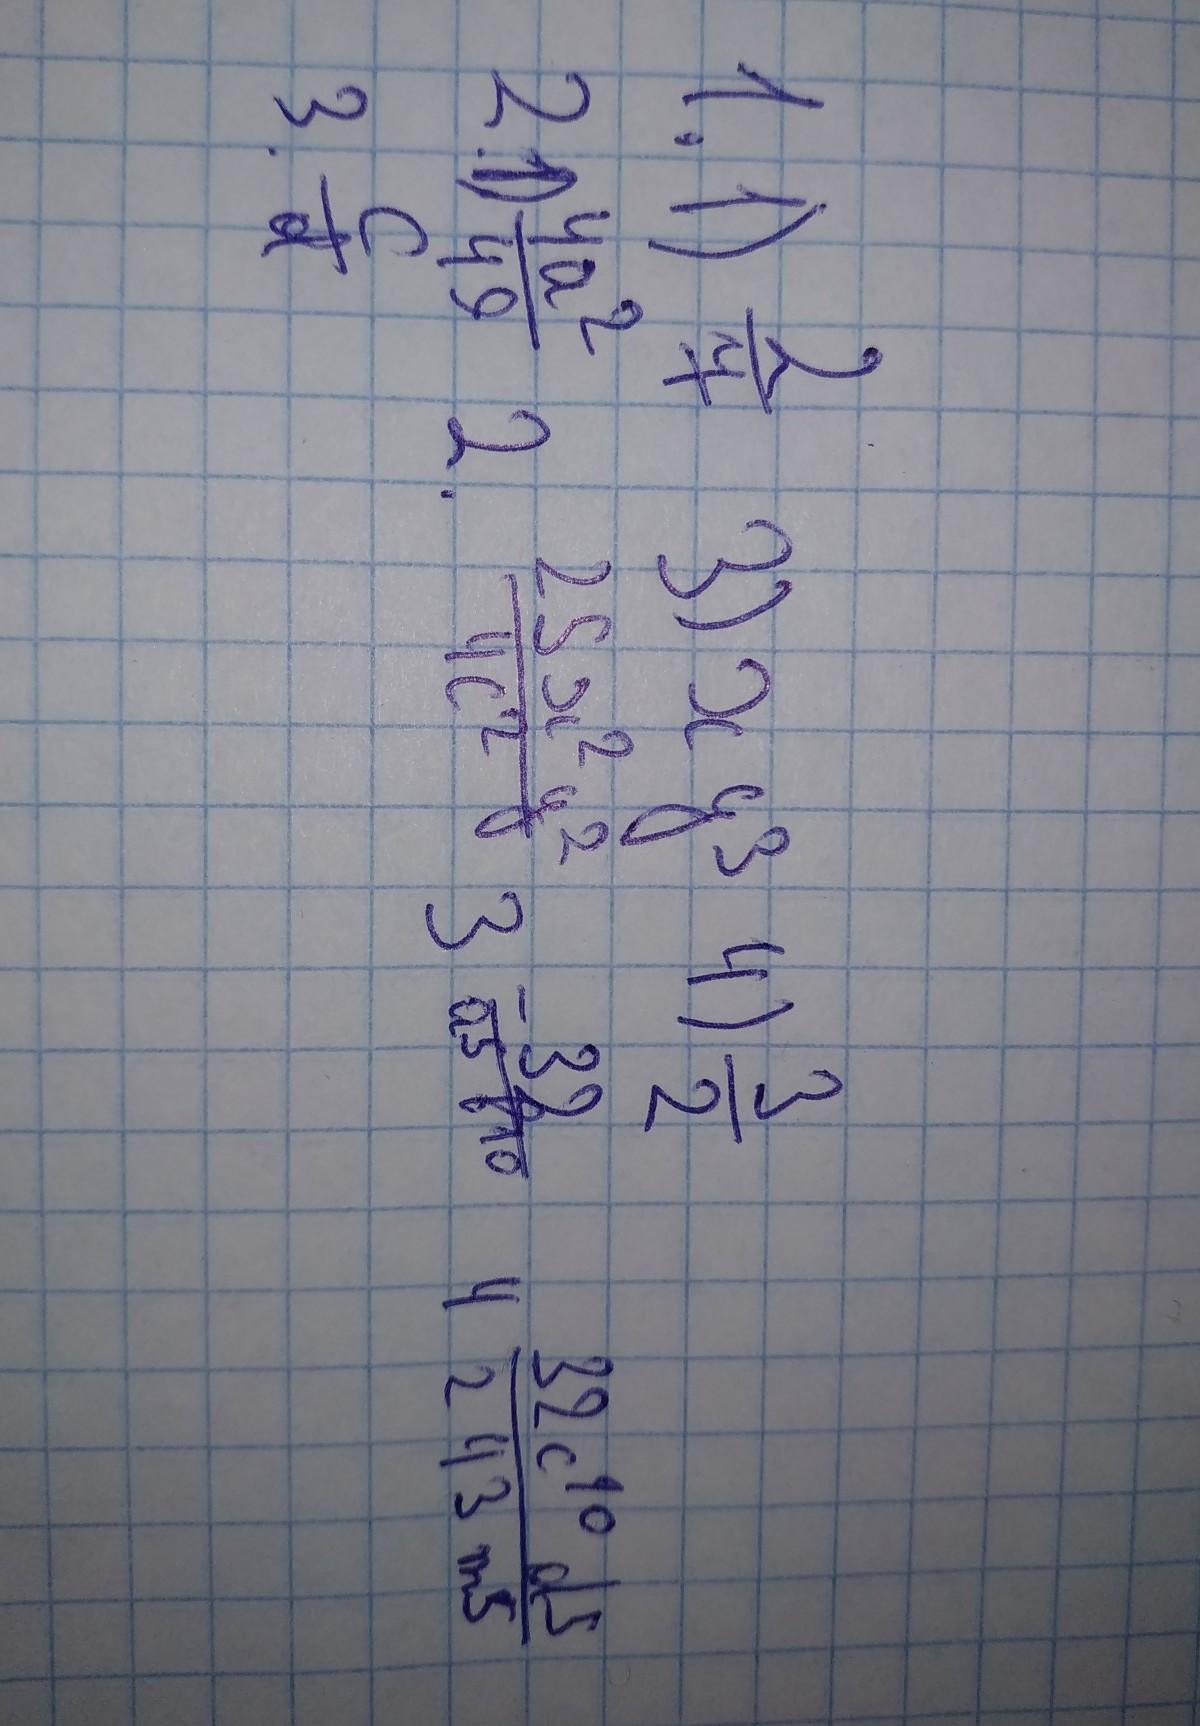 1. 1) 2/y 3) xy³ 4) 3/2
2. 1) 4a²/49 2. 25x²y²/4c² 3 -32/a⁵b¹⁰ 4 32c¹⁰d⁵/243m⁵
3. c/d